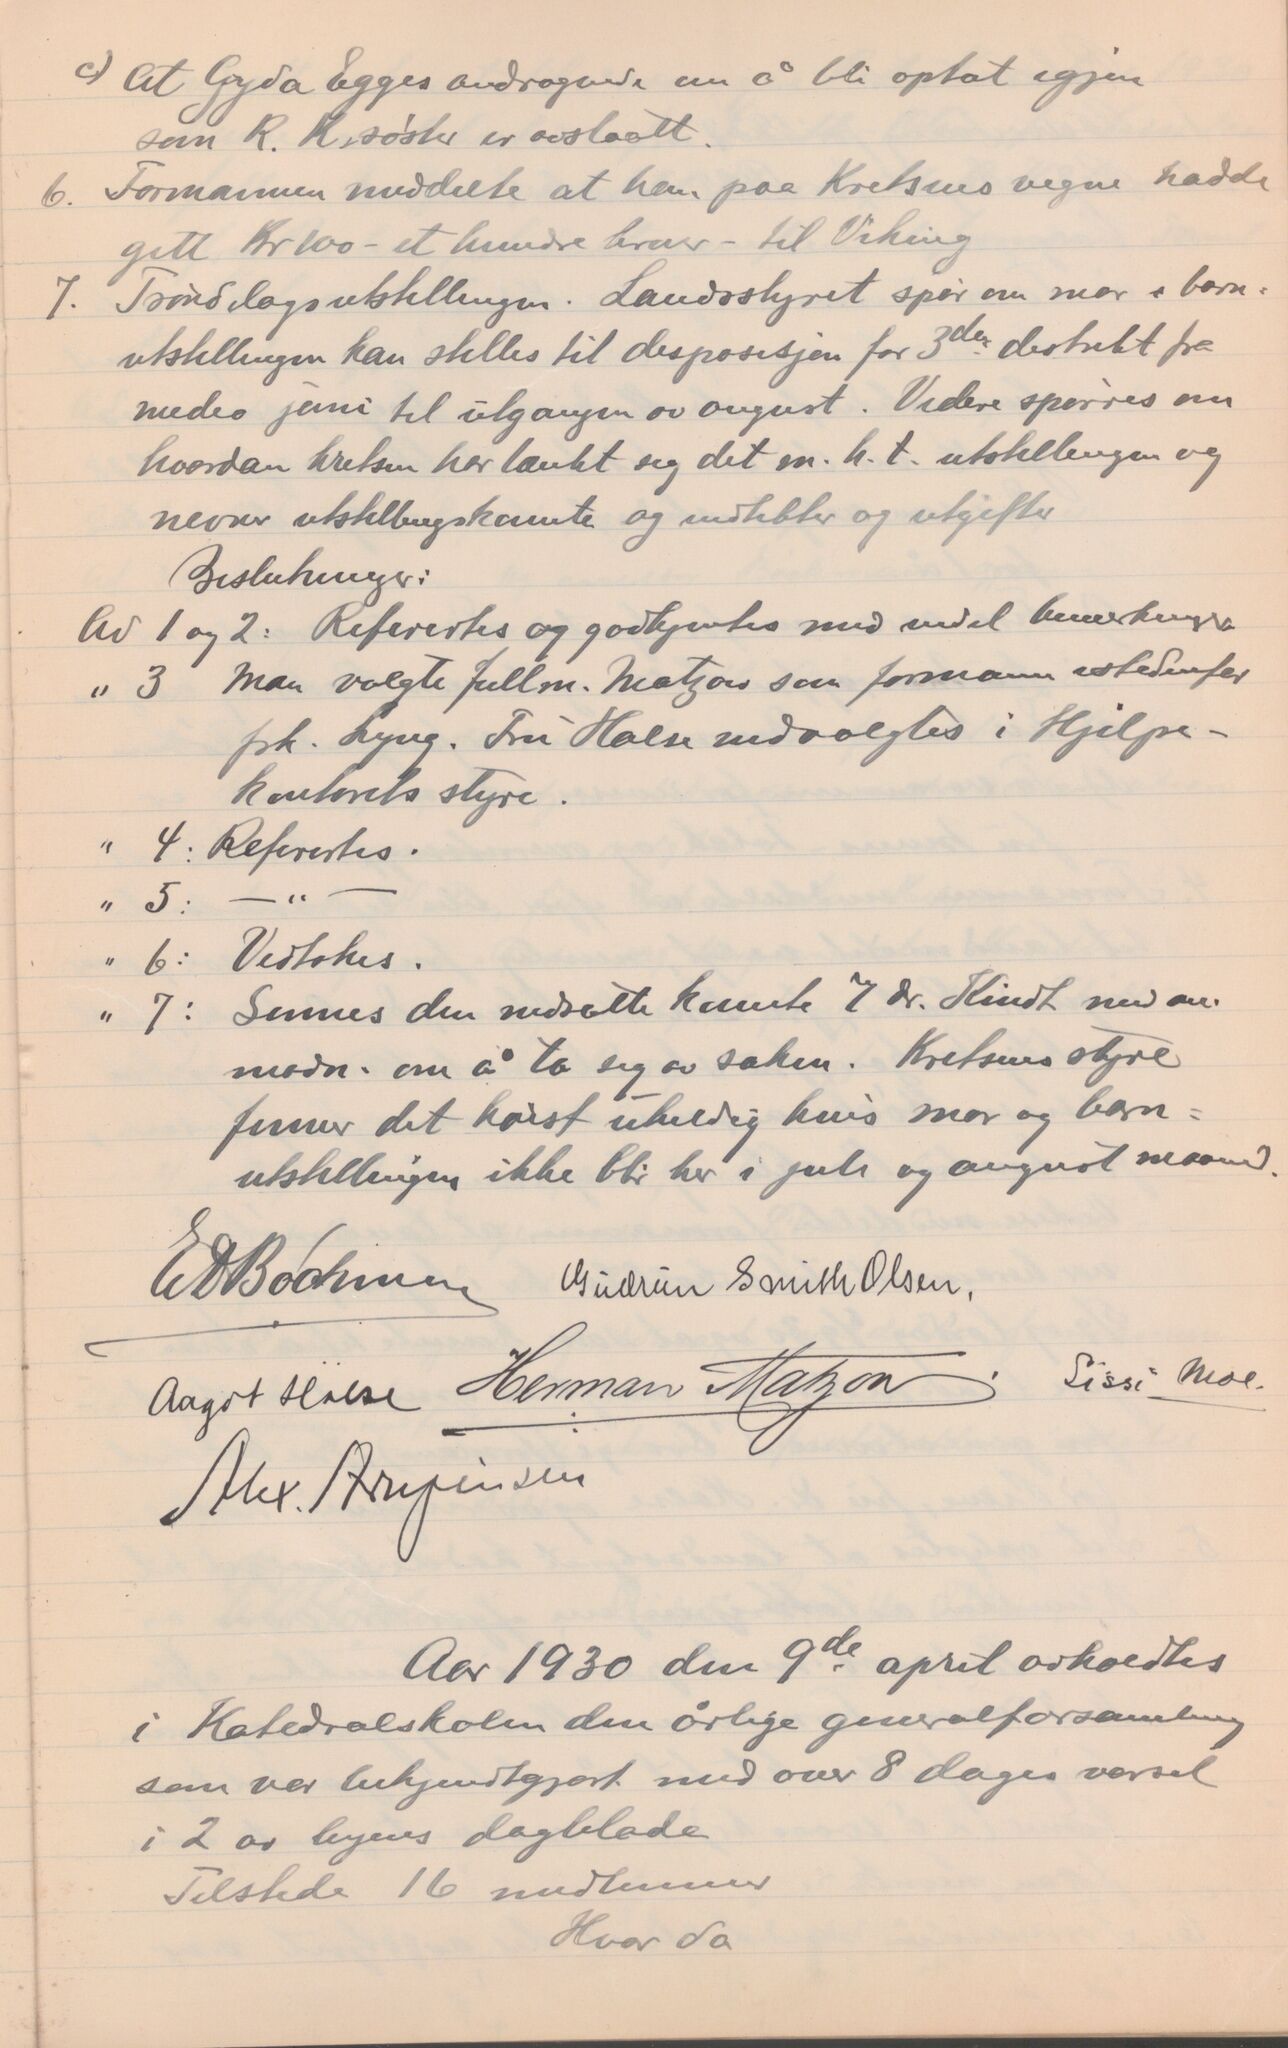 c) At Gyda Egges andragende om å bli optat igjen
som R. K. søster er avslaatt.
6. Formannen meddelte at han paa Kretsens vegne hadde
gitt Kr 100 - et hundre kroner - til Viking
7. Trøndelagsutstillingen. Landsstyret spør om mor & barn-
utstillingen kan stilles til disposisjon for 3die distrikt fra
medio juni til utgangen av august. Videre spørres om
hvordan kretsen har tænkt sig det m. h. t. utstillingen og
nevner utstillingskomite og indtekter og utgifter
Beslutninger:
Ad 1 og 2: Referertes og godkjentes med endel bemerkninger
" 3 Man valgte fullm. Matzow som formann istedenfor
frk. Lyng. Fru Halse indvalgtes i Hjelpe-
kontorets styre.
" 4: Referertes.
" 5: — " —
" 6: Vedtokes.
" 7: Sennes den nedsatte komite v/ dr. Kindt med an-
modn. om å ta sig av saken. Kretsens styre
finner det høist uheldig hvis mor og barn-
utstillingen ikke blir her i juli og august maaned.
Gudrun Smith Olsen.
Aagot Halse Herman Matzow Sissi Moe.
Alex.
Aar 1930 den 9de april avholdtes
i Katedralskolen den årlige generalforsamling
som var bekjendtgjort med over 8 dages varsel
i 2 av byens dagblade
Tilstede 16 medlemmer
Hvor da